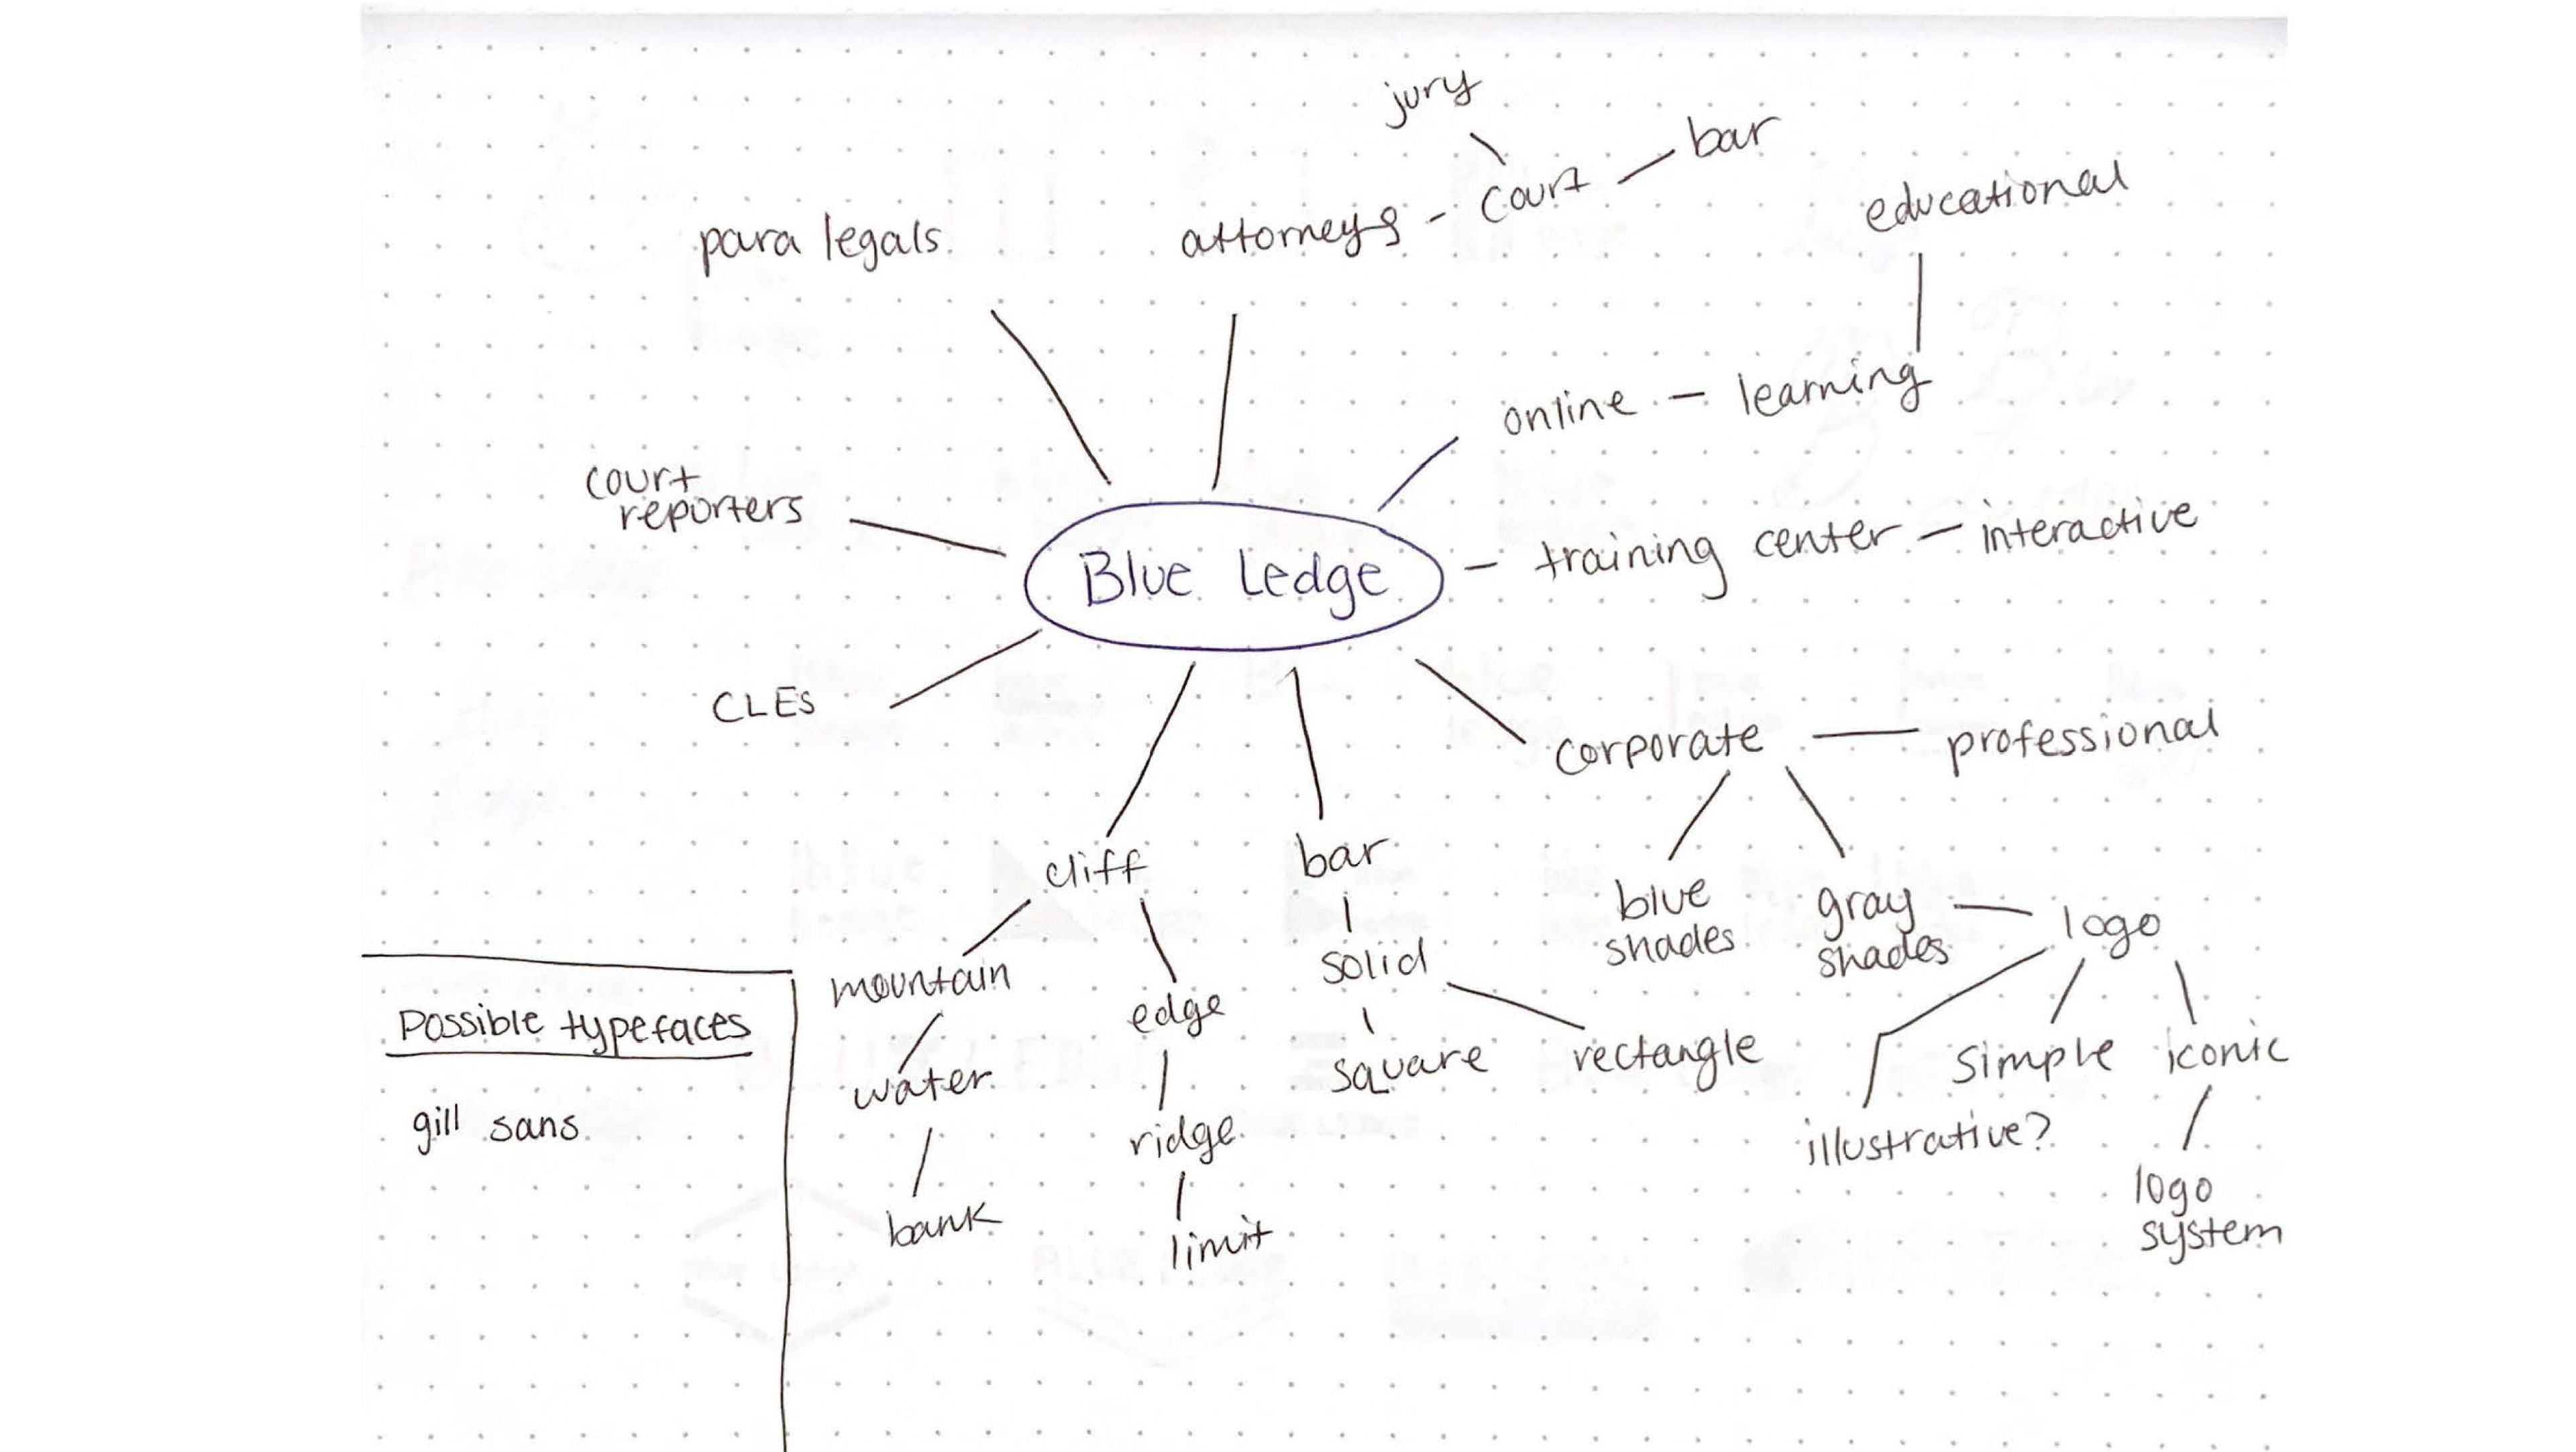 jury
bar
attorneys - court
educational
para legals
online - learning
court
reporters
Blue Ledge
- training center - interactive
CLEs
corporate
professional
cliff
bar
blue
shades
gray
shades
logo
mountain
edge
solid
square
rectangle
simple
iconic
water
ridge
illustrative?
bank
limit
logo
system
Possible typefaces
gill sans